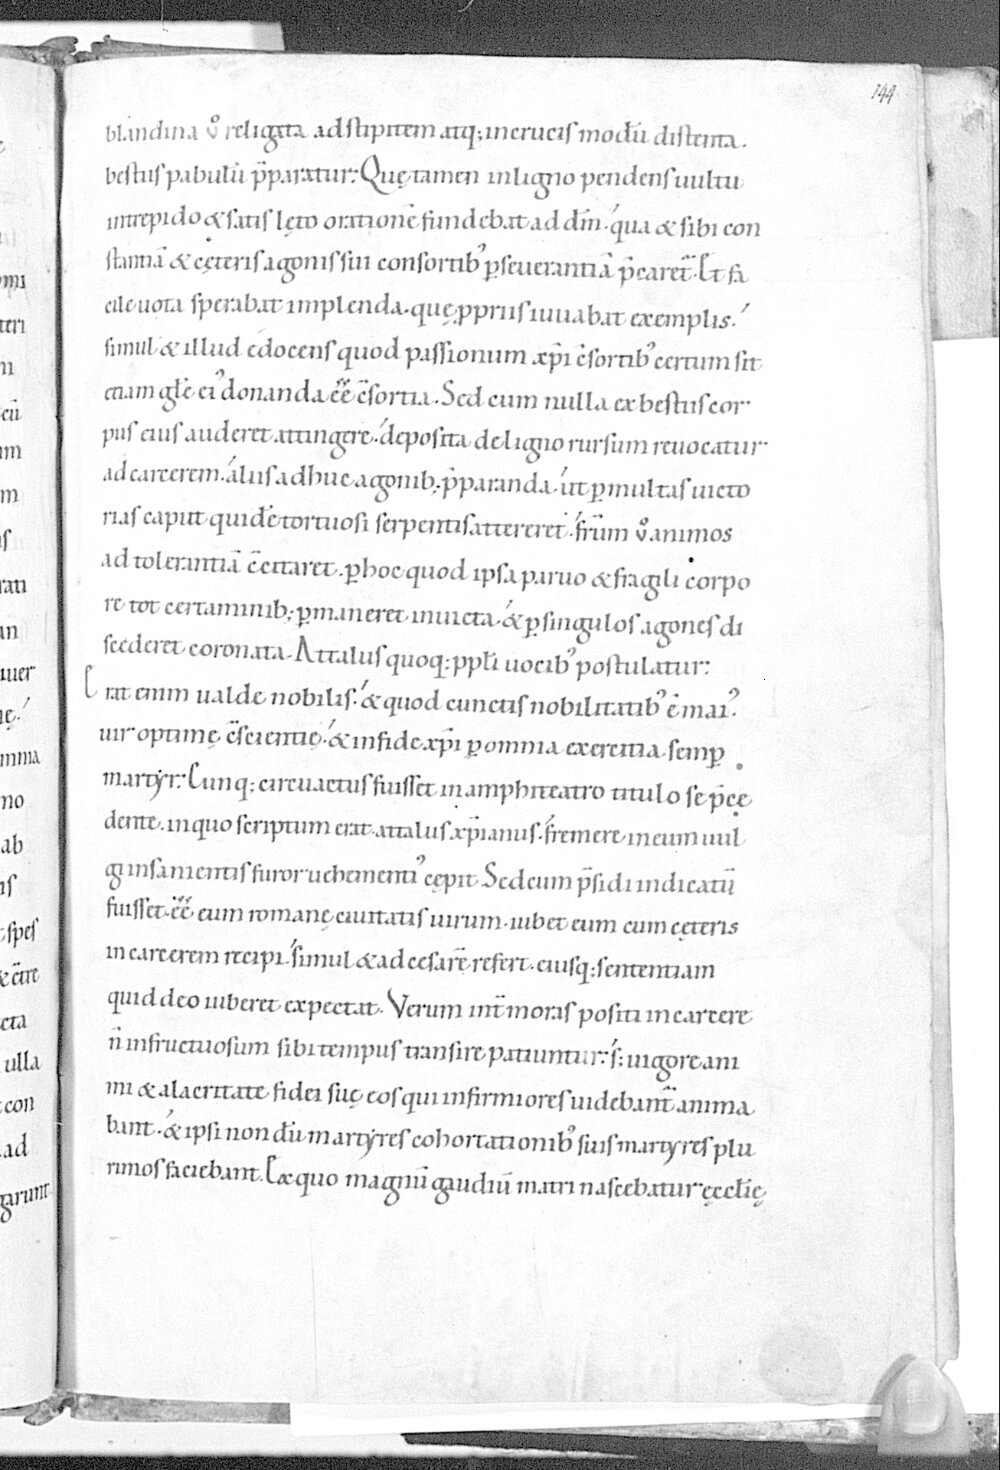 144
blandina v̊ religata ad stipitem atq; in crucis modū distenta.
bestiis pabulū p̄paratur: Quę tamen in ligno pendens uultu
intrepido & satis lęto orationē fundebat ad dm̄. qua & sibi con
stantiā & cęteris agonis sui consortib᾽ p̱seuerantiā p̄caret᷑. Et fa
cile uota sperabat implenda. quę p̱priis iuuabat exemplis.
simul & illud c̄docens quod passionum xp̄i c̄sortib᾽ certum sit
etiam glē ei᾽ donanda ēē c̄sortia. Sed cum nulla ex bestiis cor
pus eius auderet attingere. deposita de ligno rursum reuocatur
ad carcerem. aliis adhuc agonib; p̄paranda. ut p̱ multas uicto
rias caput quidē tortuosi serpentis attereret. frm̄ v̊ animos
ad tolerantiā c̄citaret. p̱ hoc quod ipsa paruo & fragili corpo
re tot certaminib; p̱maneret inuicta. & p̱ singulos agones di
scederet coronata. Attalus quoq; ppłi uocib᾽ postulatur:
Erat enim ualde nobilis. & quod cunctis nobilitatib᾽ ē mai᾽.
uir optimę c̄scientię. & in fide xp̄i p̱ omnia exercitia semp̱
martyr: Cunq; circuactus fuisset in amphiteatro titulo se p̄cę
dente. in quo scriptum erat. attalus xp̄ianus. fremere in eum uul
gi insanientis furor uehementi᾽ cępit. Sed cum p̄sidi indicatū
fuisset. ēē eum romanę ciuitatis uirum. iubet eum cum cęteris
in carcerem recipi. simul & ad cesarē refert. eiusq; sententiam
quid deo iuberet expectat. Verum int̄ moras positi in carcere
n̄ infructuosum sibi tempus transire patiuntur: s; uigore ani
mi & alacritate fidei suę eos qui infirmiores uidebant᷑ anima
bant. & ipsi non dū martyres cohortationib᾽ suis martyres plu
rimos faciebant. Ex quo magnū gaudiū matri nascebatur ęcclīę